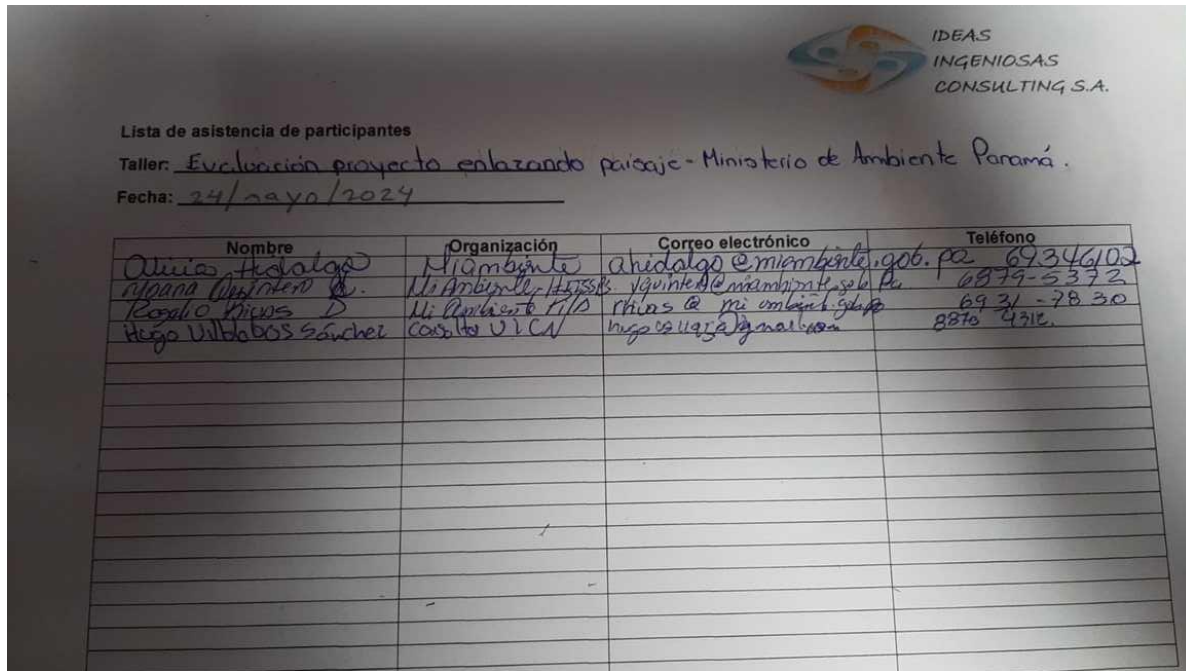 IDEAS
INGENIOSAS
CONSULTING S.A.
Lista de asistencia de participantes
Taller: Evaluación proyecto enlazando paisaje - Ministerio de Ambiente Panamá.
Fecha: 24/mayo/2024
Nombre Organización Correo electrónico Teléfono
Alicia Hidalgo Miambiente ahidalgo@miambiente.gob.pa 69346102
Quintero Mi Ambiente 6879-5372
Rogelio Rivas D Mi Ambiente 6931-7830
Hugo Villalobos Sánchez UICN 8870 4312.